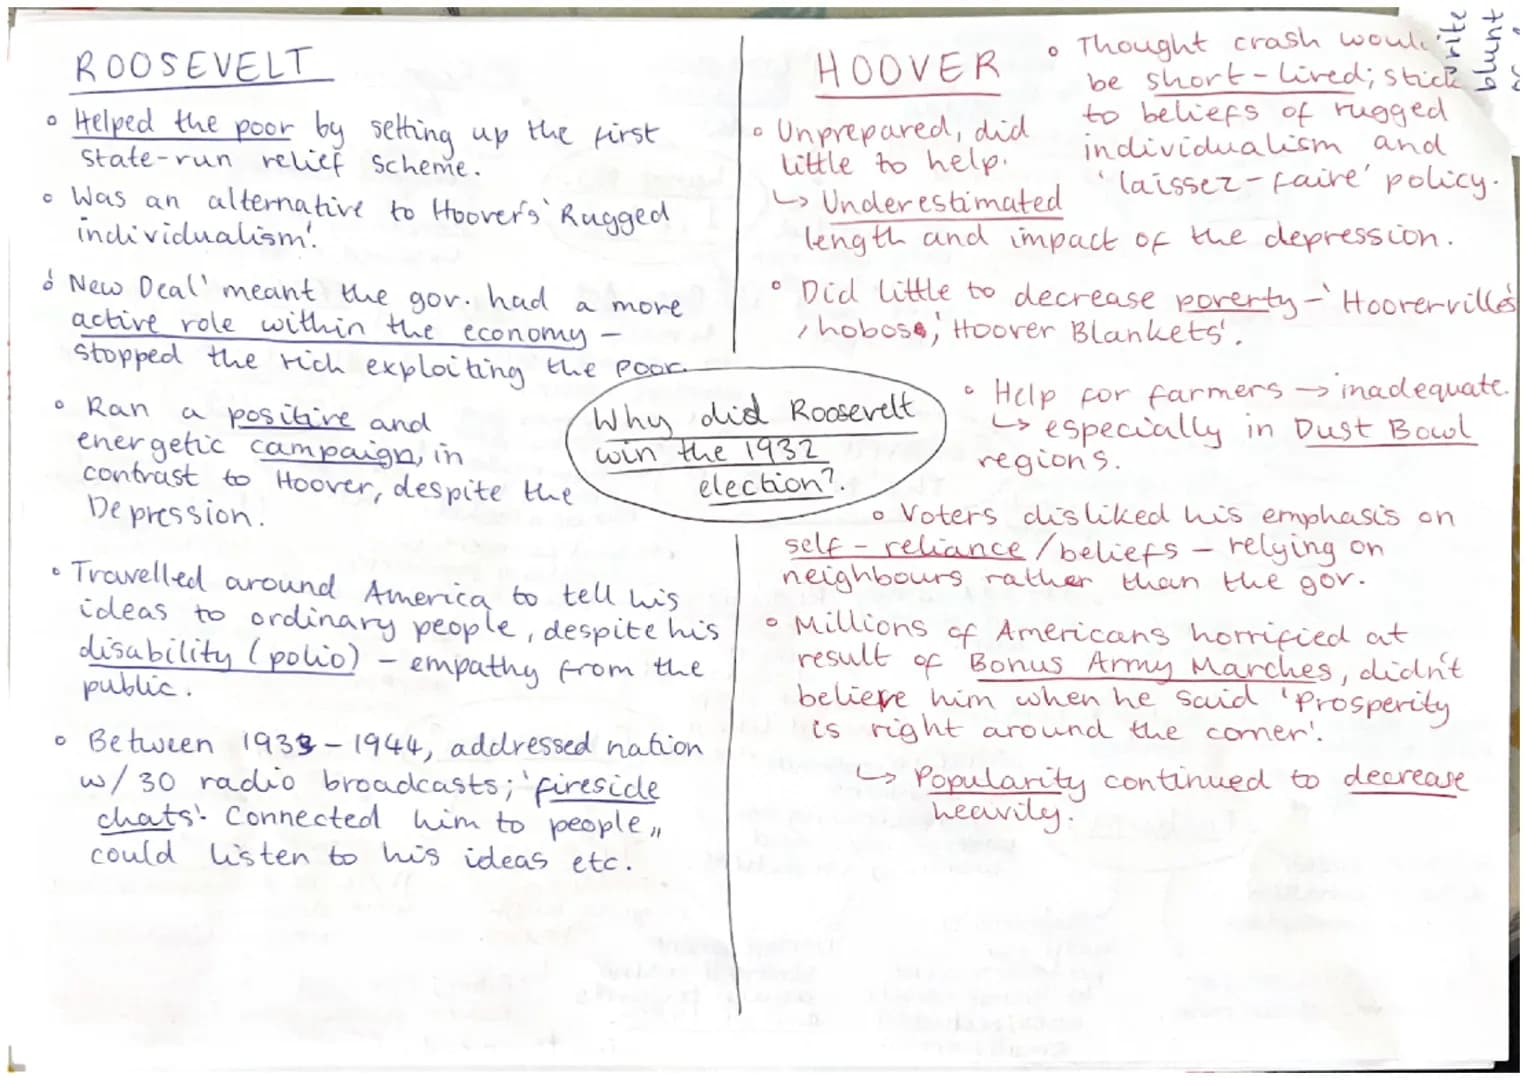 ROOSEVELT
◦ Helped the poor by setting up the first
state-run relief scheme.
◦ Was an alternative to Hoover's 'Rugged
individualism'.
◦ New Deal' meant the gov. had a more
active role within the economy -
stopped the rich exploiting the poor.
◦ Ran a positive and
energetic campaign, in
contrast to Hoover, despite the
Depression.
◦ Travelled around America to tell his
ideas to ordinary people, despite his
disability (polio) - empathy from the
public.
◦ Between 1933 - 1944, addressed nation
w/ 30 radio broadcasts; 'fireside
chats'. Connected him to people,,
could listen to his ideas etc.
Why did Roosevelt
win the 1932
election?
HOOVER
◦ Thought crash would
be short-lived; stick
to beliefs of rugged
individualism and
'laissez-faire' policy.
◦ Unprepared, did
little to help.
↳ Underestimated
length and impact of the depression.
◦ Did little to decrease poverty - 'Hoovervilles'
, hobos, 'Hoover Blankets'.
◦ Help for farmers → inadequate.
↳ especially in Dust Bowl
regions.
◦ Voters disliked his emphasis on
self-reliance / beliefs - relying on
neighbours rather than the gov.
◦ Millions of Americans horrified at
result of Bonus Army Marches, didn't
believe him when he said 'Prosperity
is right around the corner'.
↳ Popularity continued to decrease
heavily.
write
blunt